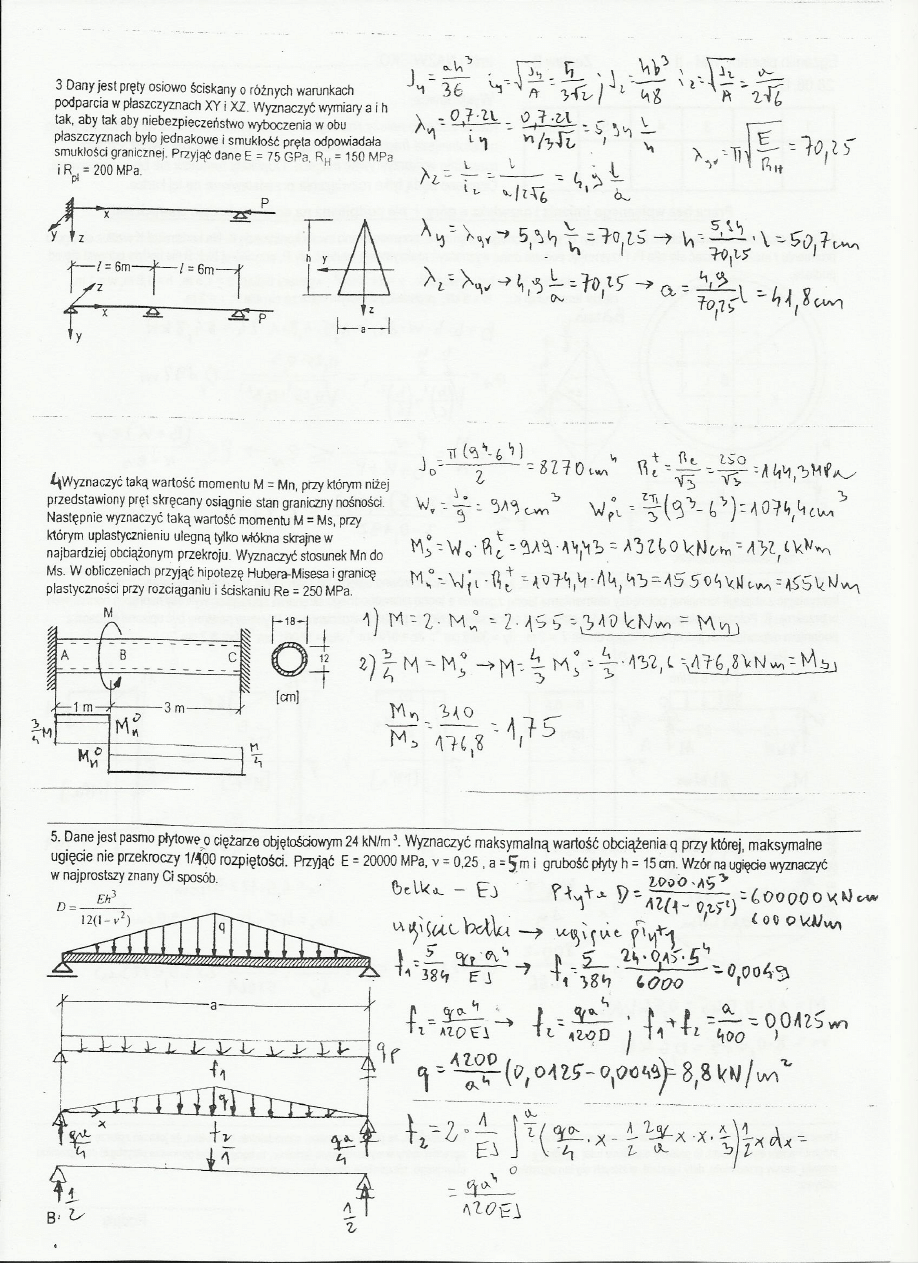 3 Dany jest pręty osiowo ściskany o różnych warunkach
podparcia w płaszczyznach XY i XZ. Wyznaczyć wymiary a i h
tak, aby tak aby niebezpieczeństwo wyboczenia w obu
płaszczyznach było jednakowe i smukłość pręta odpowiadała
smukłości granicznej. Przyjąć dane E = 75 GPa, R_H = 150 MPa
i R_pl = 200 MPa.
J_y = ah³/36 i_y = √(J_y/A) = h/3√2 ; J_z = hb³/48 i_z = √(J_z/A) = a/2√6
λ_y = 0,7·2l/i_y = 0,7·2l/(h/3√2) = 5,94 l/h
λ_gr = π√(E/R_H) = 70,25
λ_z = l/i_z = l/(a/2√6) = 4,9 l/a
λ_y = λ_gr → 5,94 l/h = 70,25 → h = 5,94/70,25 · l = 50,7 cm
λ_z = λ_gr → 4,9 l/a = 70,25 → a = 4,9/70,25 l = 41,8 cm
x P
y z
l = 6m l = 6m
z
x P
y
h y
z
a
4 Wyznaczyć taką wartość momentu M = Mn, przy którym niżej
przedstawiony pręt skręcany osiągnie stan graniczny nośności.
Następnie wyznaczyć taką wartość momentu M = Ms, przy
którym uplastycznieniu ulegną tylko włókna skrajne w
najbardziej obciążonym przekroju. Wyznaczyć stosunek Mn do
Ms. W obliczeniach przyjąć hipotezę Hubera-Misesa i granicę
plastyczności przy rozciąganiu i ściskaniu Re = 250 MPa.
J_0 = π(9⁴-6⁴)/2 = 8270 cm⁴ R_e^t = R_e/√3 = 250/√3 = 144,3 MPa
W_0 = J_0/9 = 919 cm³ W_pl^0 = 2π/3 (9³-6³) = 1074,4 cm³
M_s^0 = W_0·R_e^t = 919·14,43 = 13260 kNcm = 132,6 kNm
M_n^0 = W_pl^0·R_e^t = 1074,4·14,43 = 15504 kNcm = 155 kNm
1) M = 2·M_n^0 = 2·155 = 310 kNm = M_n
2) 3/4 M = M_s^0 → M = 4/3 M_s^0 = 4/3·132,6 = 176,8 kNm = M_s
M_n/M_s = 310/176,8 = 1,75
M
A B C
18
12
[cm]
1 m 3 m
3/4 M M_n^0
M_n^0 M/4
5. Dane jest pasmo płytowe o ciężarze objętościowym 24 kN/m³. Wyznaczyć maksymalną wartość obciążenia q przy której, maksymalne
ugięcie nie przekroczy 1/400 rozpiętości. Przyjąć E = 20000 MPa, ν = 0,25 , a = 5 m i grubość płyty h = 15 cm. Wzór na ugięcie wyznaczyć
w najprostszy znany Ci sposób.
D = Eh³/12(1-ν²)
Belka – EJ Płyta D = 2000·15³/12(1-0,25²) = 600000 kNcm
6000 kNm
ugięcie belki → ugięcie płyty
f_1 = 5/384 q_p·a⁴/EJ → f_1 = 5/384 · 24·0,15·5⁴/6000 = 0,0049
f_2 = qa⁴/120EJ → f_2 = qa⁴/120D ; f_1+f_2 = a/400 = 0,0125 m
q = 120D/a⁴ (0,0125-0,0049) = 8,8 kN/m²
f_2 = 2·1/EJ ∫_0^{a/2} (qa/4·x - 1/2 2q/a x·x·x/3) 1/2 x dx =
= qa⁴/120EJ
q
a
q_p
f_1
q
x
qa/4 f_2 qa/4
1
1/2 1/2
B: